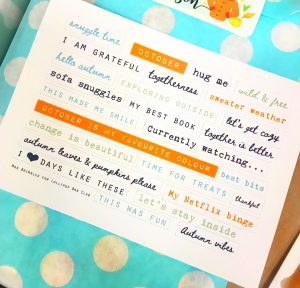 snuggle time OCTOBER hug me wild & free
I AM GRATEFUL togetherness sweater weather
hello autumn EXPLORING OUTSIDE let's get cozy
sofa snuggles MY BEST BOOK together is better
THIS MADE ME SMILE Currently watching...
OCTOBER IS MY FAVOURITE COLOUR best bits
change is beautiful TIME FOR TREATS thankful
autumn leaves & pumpkins please My Netflix binge
I ♥ DAYS LIKE THESE let's stay inside
THIS WAS FUN Autumn vibes